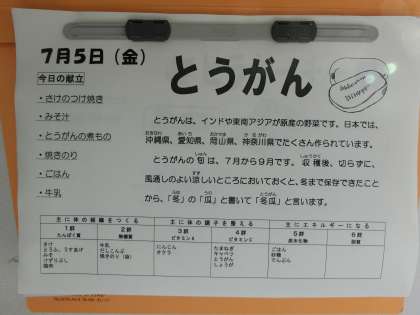 7月5日（金）
とうがん
今日の献立
・さけのつけ焼き
・みそ汁
・とうがんの煮もの
・焼きのり
・ごはん
・牛乳
とうがんは、インドや東南アジアが原産の野菜です。日本では、
沖縄県、愛知県、岡山県、神奈川県でたくさん作られています。
とうがんの旬は、7月から9月です。収穫後、切らずに、
風通しのよい涼しいところにおいておくと、冬まで保存できたこと
から、「冬」の「瓜」と書いて「冬瓜」と言います。
主に体の組織をつくる 主に体の調子を整える 主にエネルギーになる
1群 2群 3群 4群 5群 6群
たんぱく質 無機質 ビタミンA ビタミンC 炭水化物 脂質
さけ 牛乳 にんじん たまねぎ ごはん
とうふ、うすあげ だしこんぶ オクラ キャベツ 砂糖
みそ 焼きのり とうがん でんぷん
けずりぶし しょうが